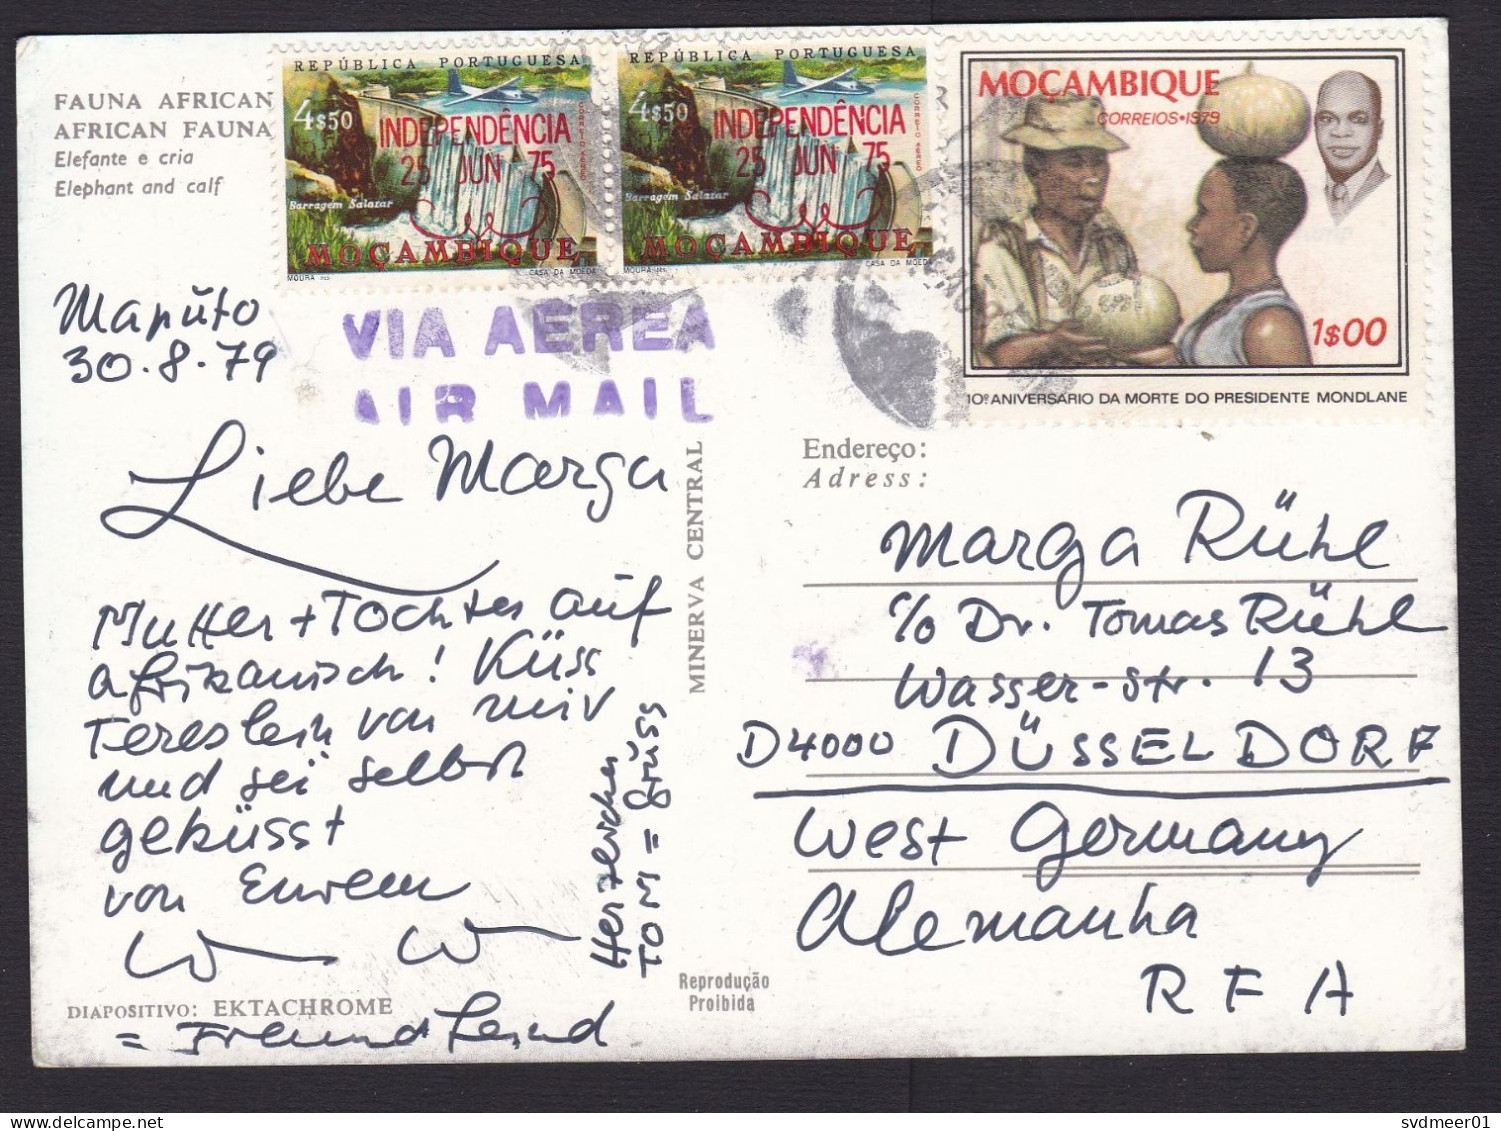 FAUNA AFRICAN
AFRICAN FAUNA
Elefante e cria
Elephant and calf
REPÚBLICA PORTUGUESA
4$50
CORREIO AÉREO
INDEPENDÊNCIA
25 JUN 75
Barragem Salazar
MOÇAMBIQUE
MOURA DES.
CASA DA MOEDA
REPÚBLICA PORTUGUESA
4$50
CORREIO AÉREO
INDEPENDÊNCIA
25 JUN 75
Barragem Salazar
MOÇAMBIQUE
MOURA DES.
CASA DA MOEDA
MOÇAMBIQUE
CORREIOS•1979
1$00
10º ANIVERSÁRIO DA MORTE DO PRESIDENTE MONDLANE
VIA AEREA
AIR MAIL
Maputo
30.8.79
Liebe Marga
Mutter + Tochter auf
afrikanisch! Küss
Tereslein von mir
und sei selbst
geküsst
von Eurem
W W
= Freund
Herzlichen
TOM = Grüss
MINERVA CENTRAL
Endereço:
Adress:
Marga Rühl
c/o Dr. Tomas Rühl
Wasser-str. 13
D4000 DÜSSELDORF
West Germany
Alemanha
RFA
DIAPOSITIVO: EKTACHROME
Reprodução
Proibida
svdmeer01